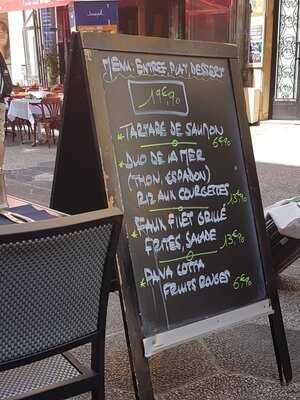 MENU: ENTREE, PLAT DESSERT
19€,90
*TARTARE DE SAUMON
6€90
*DUO DE LA MER
(THON, ESPADON)
RIZ AUX COURGETTES
13€90
*FAUX FILET GRILLÉ
FRITES, SALADE 13€90
*PANA COTTA
FRUITS ROUGES 6€90